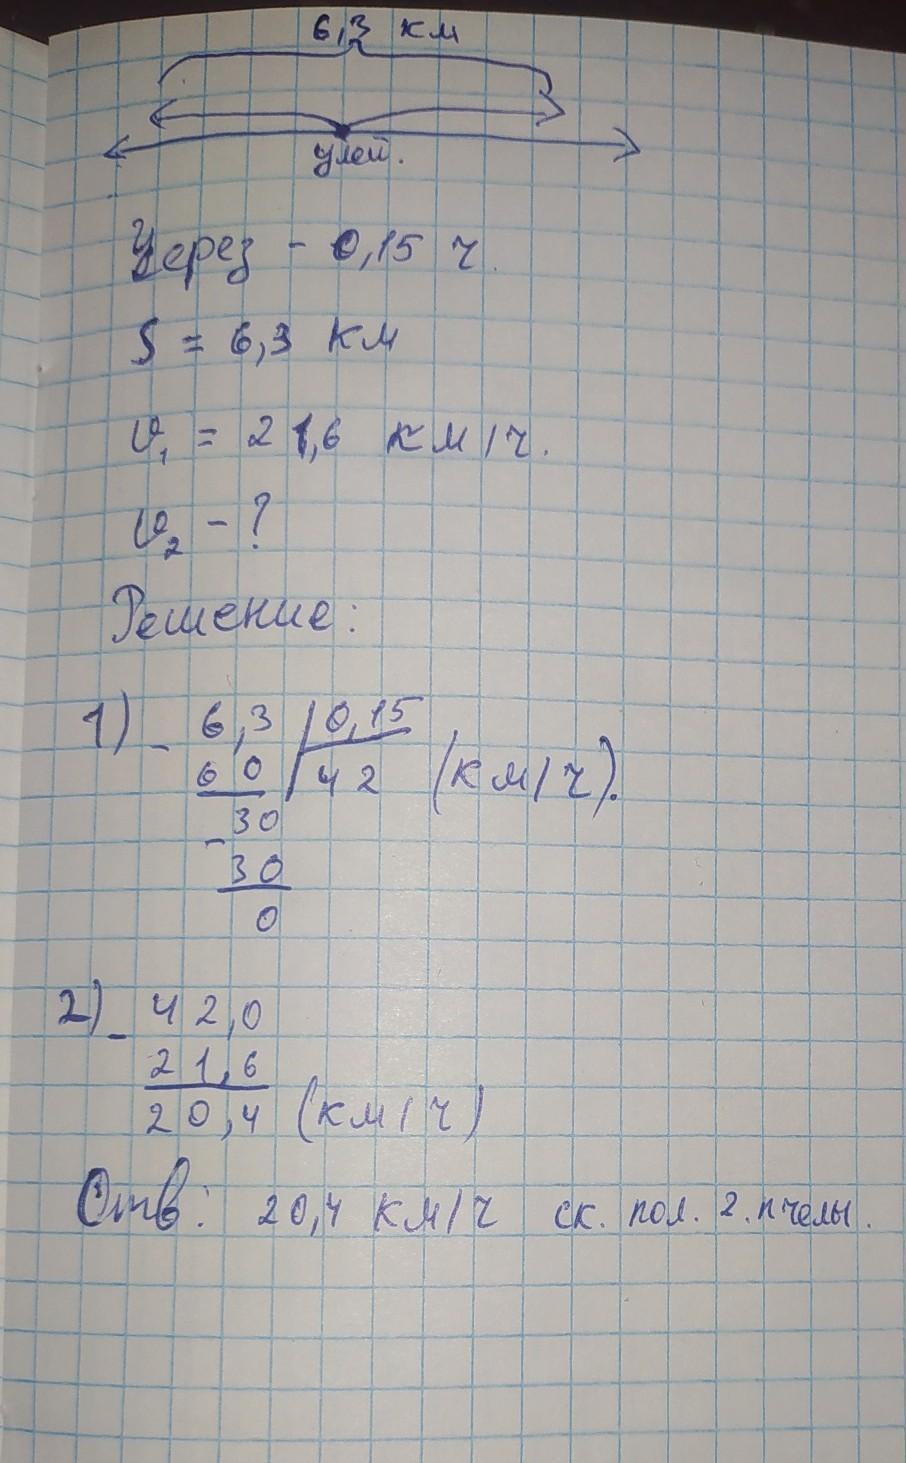 6,3 км
улей.
Через - 0,15 ч.
S = 6,3 км
v₁ = 21,6 км/ч.
v₂ - ?
Решение:
1) - 6,3 | 0,15
60 | 42 (км/ч).
- 30
30
0
2) - 42,0
21,6
20,4 (км/ч)
Отв: 20,4 км/ч ск. пол. 2. пчелы.